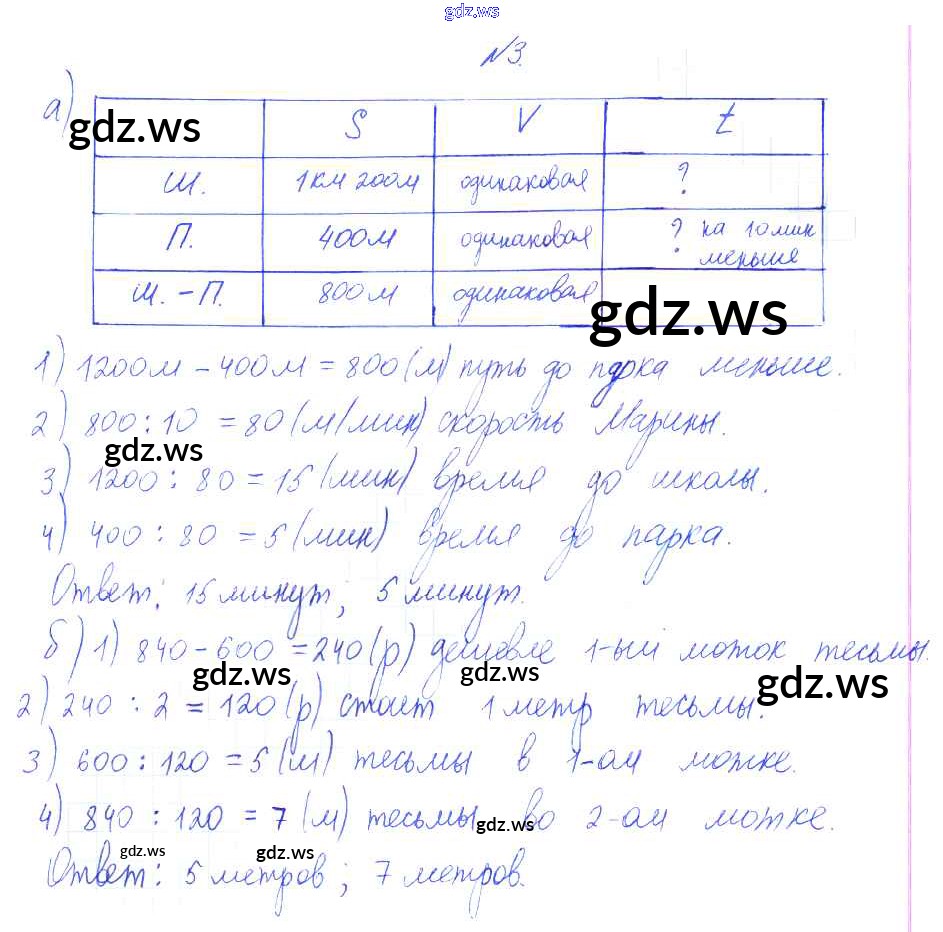 gdz.ws
№3.
а)
gdz.ws
S V t
Ш. 1 км 200м одинаковая ?
П. 400м одинаковая ? на 10 мин меньше
Ш. - П. 800м одинаковая
gdz.ws
1) 1200м - 400м = 800 (м) путь до парка меньше.
2) 800 : 10 = 80 (м/мин) скорость Марины.
gdz.ws
3) 1200 : 80 = 15 (мин) время до школы.
4) 400 : 80 = 5 (мин) время до парка.
Ответ: 15 минут; 5 минут.
б) 1) 840 - 600 = 240 (р) дешевле 1-ый моток тесьмы.
gdz.ws gdz.ws gdz.ws
2) 240 : 2 = 120 (р) стоит 1 метр тесьмы.
3) 600 : 120 = 5 (м) тесьмы в 1-ом мотке.
4) 840 : 120 = 7 (м) тесьмы во 2-ом мотке.
gdz.ws
gdz.ws gdz.ws
Ответ: 5 метров; 7 метров.